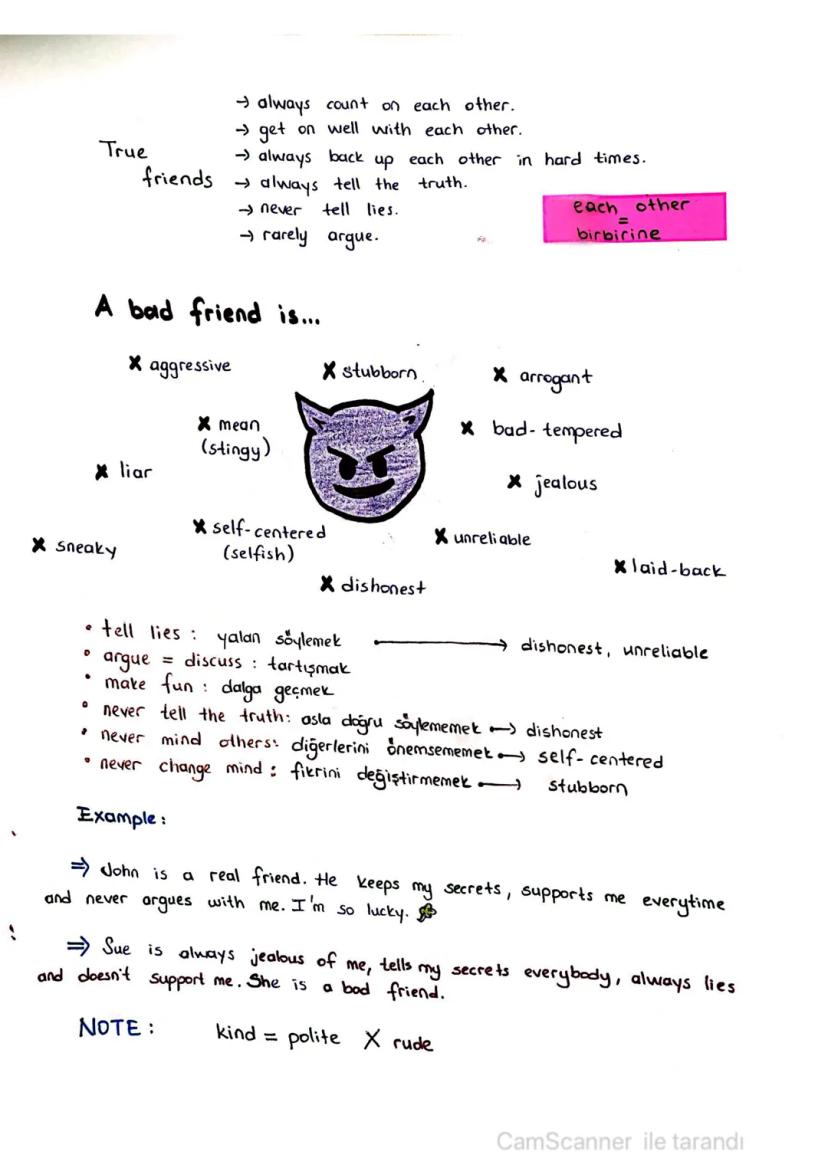 True friends
→ always count on each other.
→ get on well with each other.
→ always back up each other in hard times.
→ always tell the truth.
→ never tell lies.
→ rarely argue.
each other
=
birbirine
A bad friend is...
x aggressive
x stubborn
x arrogant
x mean
(stingy)
x bad-tempered
x liar
x jealous
x self-centered
(selfish)
x unreliable
x sneaky
x laid-back
x dishonest
• tell lies : yalan söylemek → dishonest, unreliable
• argue = discuss : tartışmak
• make fun : dalga geçmek
• never tell the truth: asla doğru söylememek → dishonest
• never mind others: diğerlerini önemsememek → self-centered
• never change mind : fikrini değiştirmemek → stubborn
Example:
⇒ John is a real friend. He keeps my secrets, supports me everytime
and never argues with me. I'm so lucky.
⇒ Sue is always jealous of me, tells my secrets everybody, always lies
and doesn't support me. She is a bad friend.
NOTE: kind = polite X rude
CamScanner ile tarandı